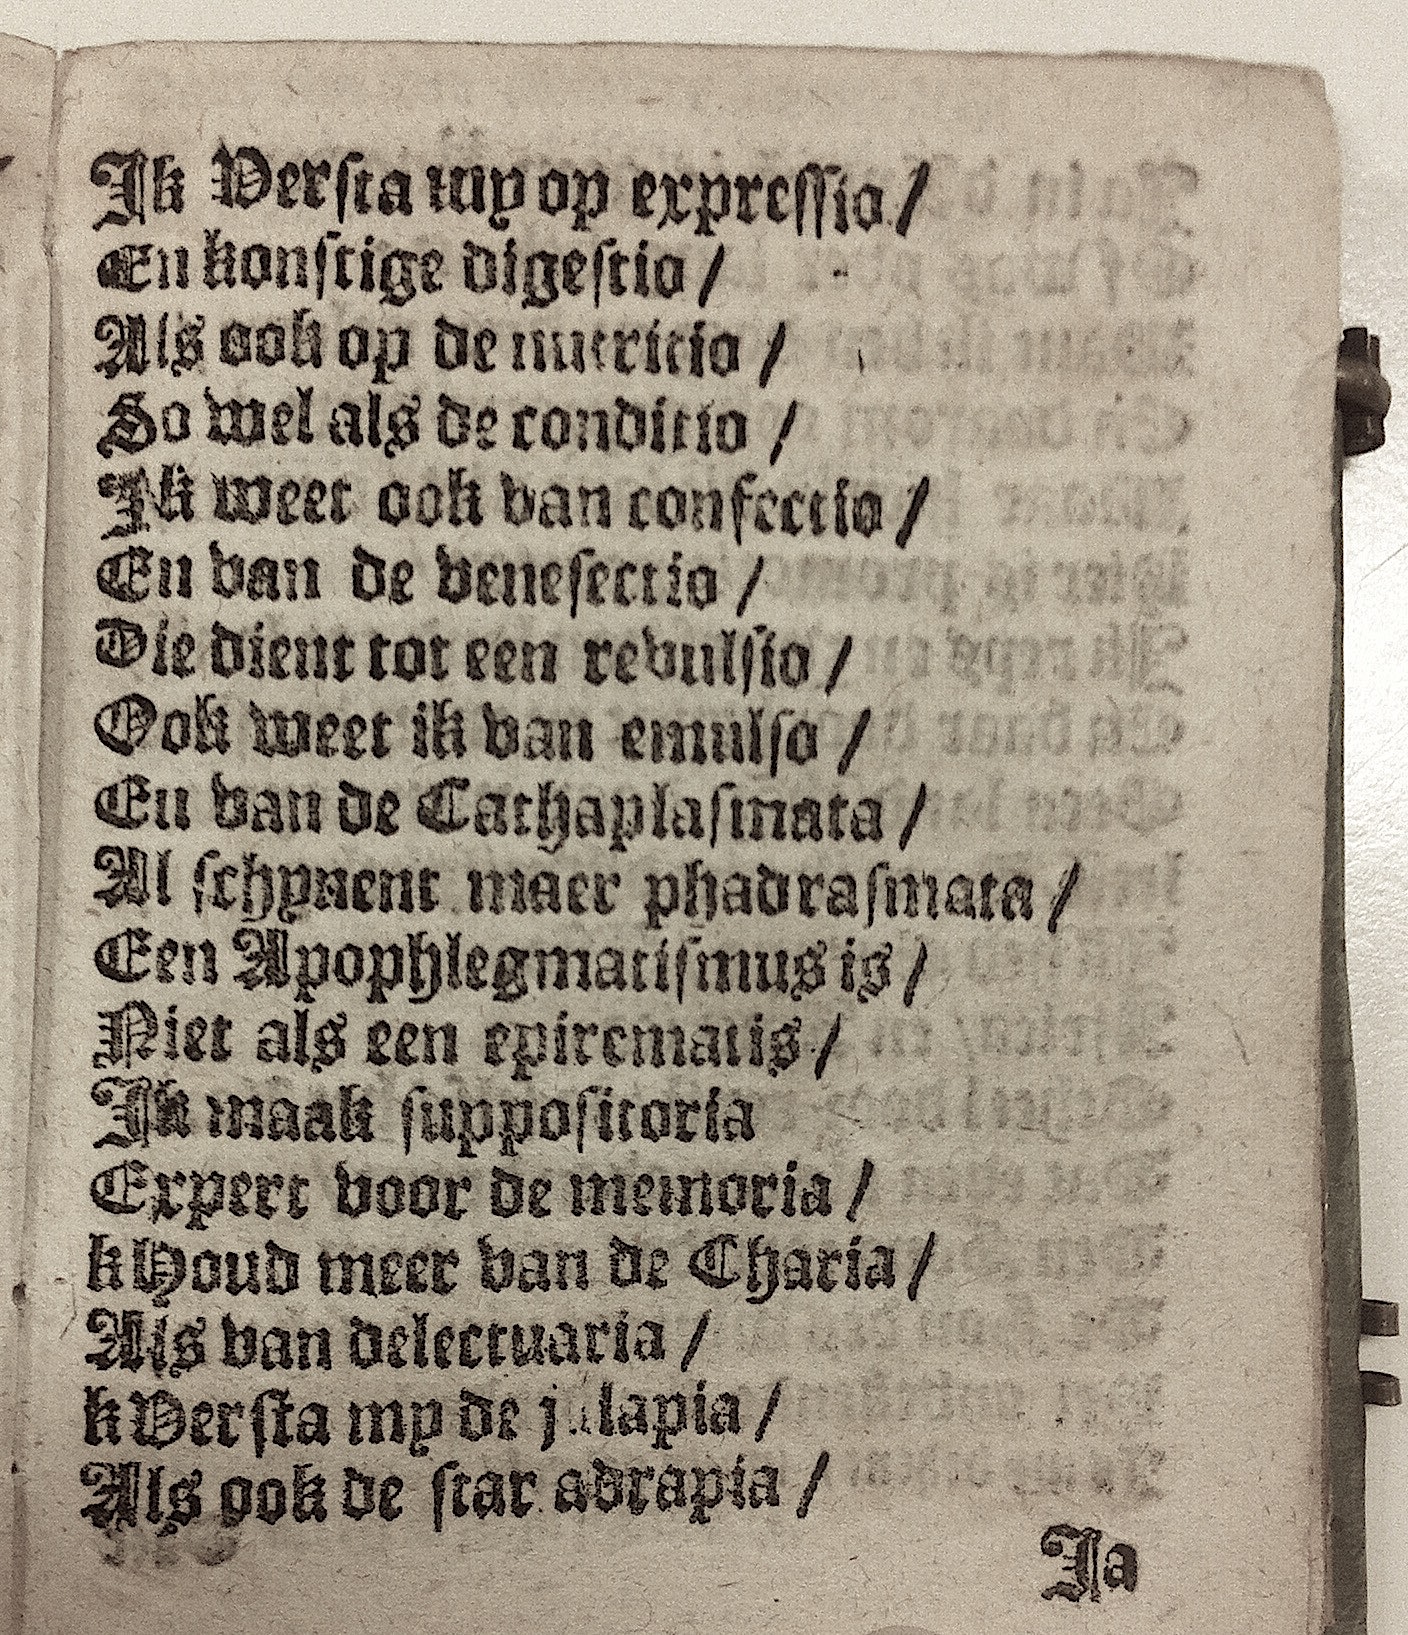 Ik Versta my op expressio /
En konstige digestio /
Als ook op de nutritio /
So wel als de conditio /
Ik weet ook van confectio /
En van de venesectio /
Die dient tot een revulsio /
Ook weet ik van emulso /
En van de Cathaplasmata /
Al schynent maer phadrasmata /
Een Apophlegmatismus is /
Niet als een epitematis /
Ik maak suppositoria
Expert voor de memoria /
k Houd meer van de Charia /
Als van delectuaria /
k Versta my de lapia /
Als ook de star adrapia /
Ja